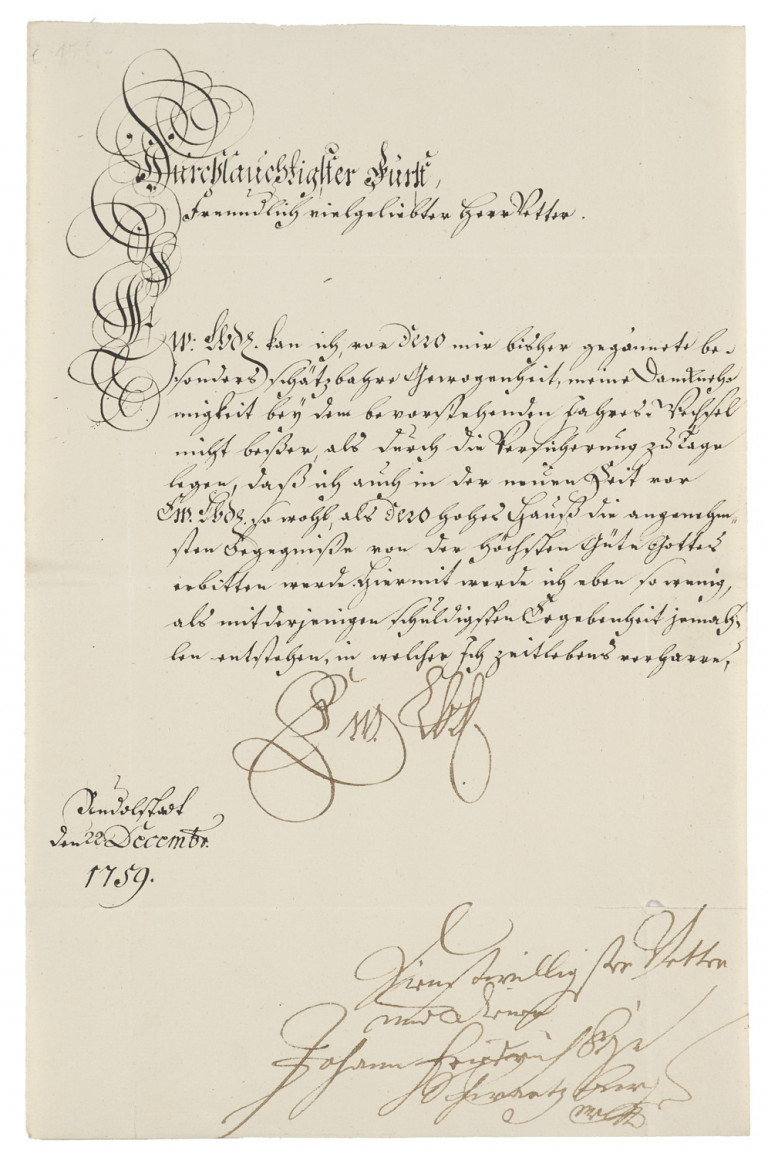 Durchlauchtigster Fürst,
Freundlich vielgeliebter Herr Vetter.
Ew: Lbd. kan ich, vor Dero mir bisher gegönnete be-
sonders schätzbahre Gewogenheit, meine Dancknehm
migkeit bey dem bevorstehenden Jahres-Wechsel
nicht beßer, als durch die Versicherung zu Tage
legen, daß ich auch in der neuen Zeit vor
Ew. Lbd. so wohl, als Dero hohes Hauß die angenehm-
sten Begegniße von der höchsten Güte Gottes
erbitten werde. Hiermit werde ich eben so wenig,
als mit derjenigen schuldigsten Ergebenheit jemah-
len entstehen, in welcher Ich zeitlebens verharre,
Ew. Lbd.
Rudolstadt
den 22 Decembr.
1759.
Dienstwilligster Vetter
und Diener
Johann Friedrich
Schwartzbur